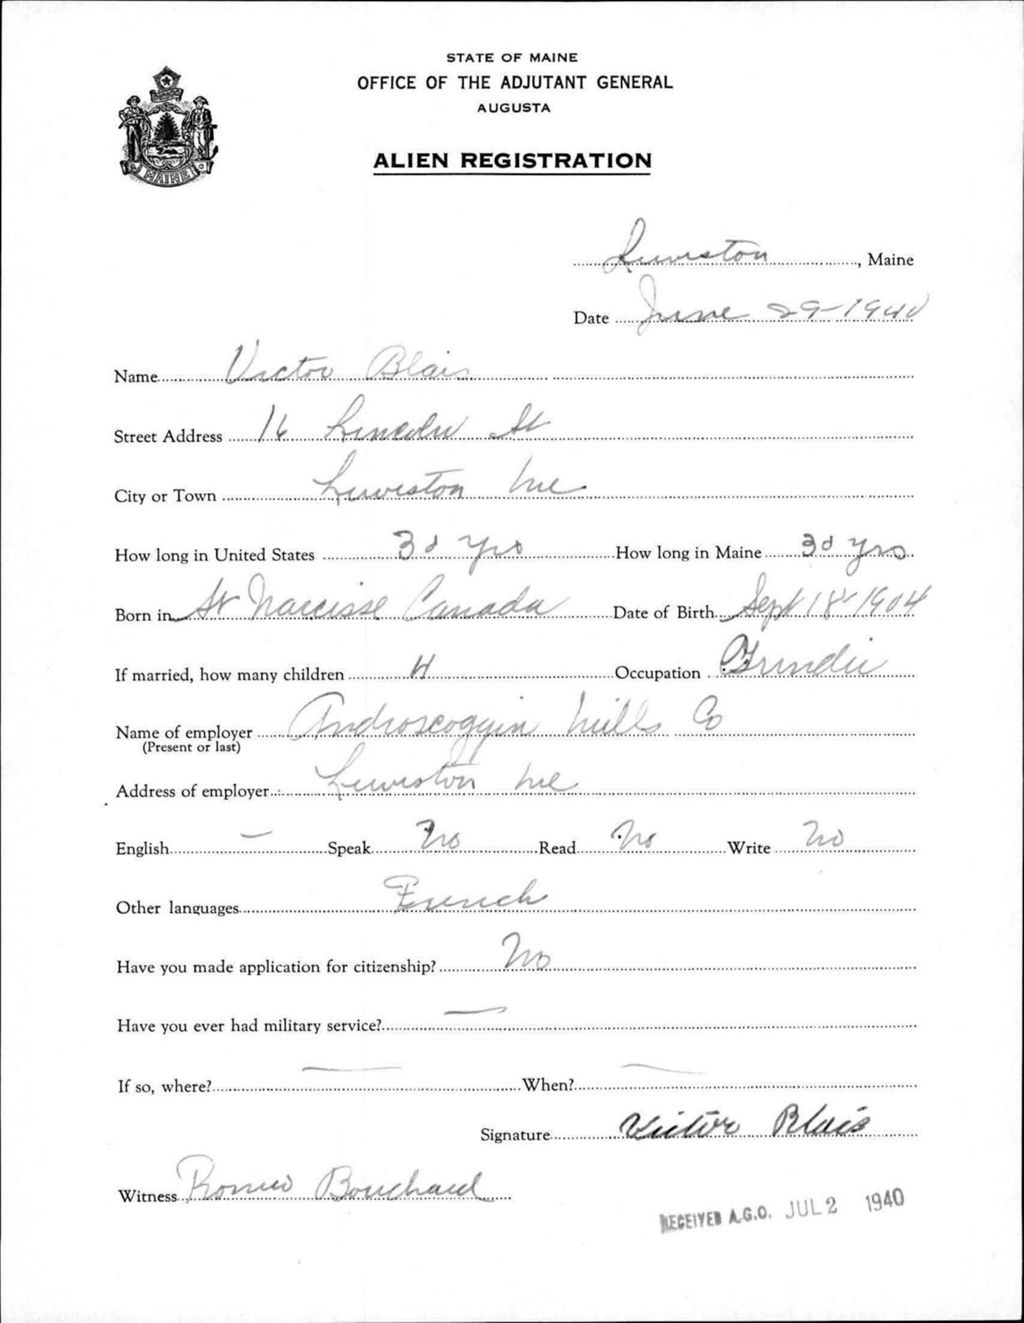 STATE OF MAINE
OFFICE OF THE ADJUTANT GENERAL
AUGUSTA
ALIEN REGISTRATION
MAINE
Lewiston, Maine
Date June 29-1940
Name Victor Blais
Street Address 16 Lincoln St
City or Town Lewiston Me
How long in United States 30 yrs How long in Maine 30 yrs
Born in St Narcisse Canada Date of Birth Sept 18-1904
If married, how many children 4 Occupation Grinder
Name of employer Androscoggin Mills Co
(Present or last)
Address of employer Lewiston Me
English — Speak No Read No Write No
Other languages French
Have you made application for citizenship? No
Have you ever had military service? —
If so, where? — When? —
Signature Victor Blais
Witness Romeo Bouchard
RECEIVED A.G.O. JUL 2 1940